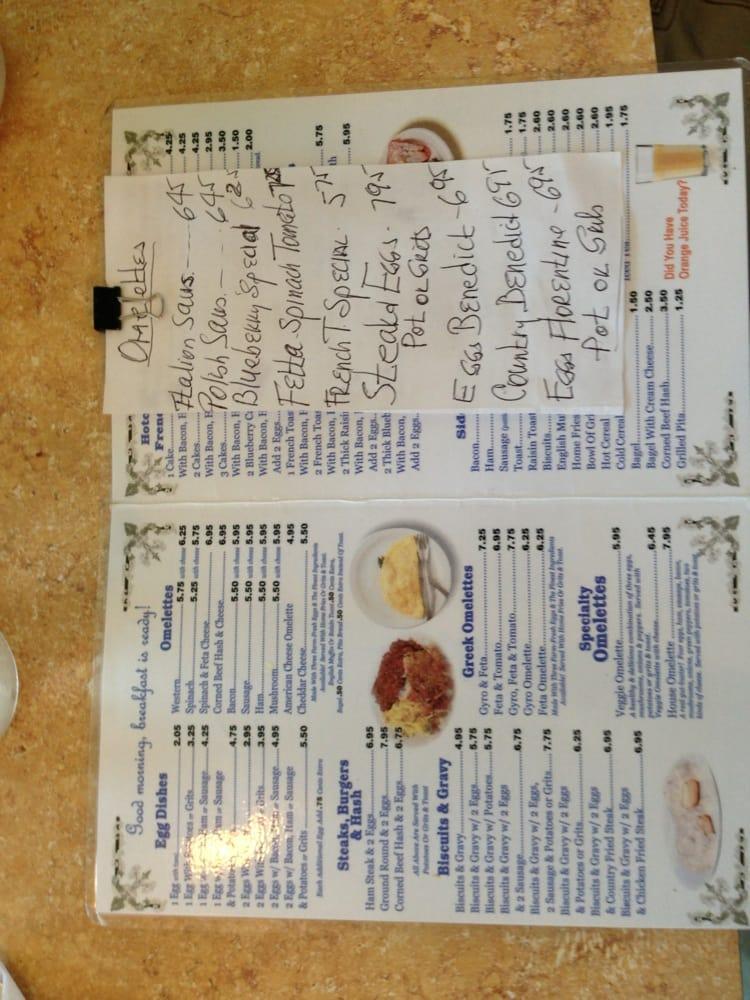 Good morning, breakfast is ready!
Egg Dishes
1 Egg 2.05
1 Egg or Grits 3.95
1 Egg Ham or Sausage 4.25
1 Egg Ham or Sausage
& Potatoes Grits 4.75
2 Eggs 2.95
2 Eggs With Grits 3.95
2 Eggs w/ Bacon, Ham or Sausage 4.95
2 Eggs w/ Bacon, Ham or Sausage
& Potatoes or Grits 5.50
Each Additional Egg Add .75 Cents Extra
Steaks, Burgers
& Hash
Ham Steak & 2 Eggs 6.95
Ground Round & 2 Eggs 7.95
Corned Beef Hash & 2 Eggs 6.75
All Above Are Served With
Potatoes Or Grits & Toast
Biscuits & Gravy
Biscuits & Gravy 4.95
Biscuits & Gravy w/ 2 Eggs 5.75
Biscuits & Gravy w/ Potatoes 5.75
Biscuits & Gravy w/ 2 Eggs
& 2 Sausage 6.75
Biscuits & Gravy w/ 2 Eggs,
2 Sausage & Potatoes or Grits 7.75
Biscuits & Gravy w/ 2 Eggs
& Potatoes or Grits 6.25
Biscuits & Gravy w/ 2 Eggs
& Country Fried Steak 6.95
Biscuits & Gravy w/ 2 Eggs
& Chicken Fried Steak 6.95
Omelettes
Western 5.75 with cheese 6.25
Spinach 5.25 with cheese 5.75
Spinach & Feta Cheese 6.95
Corned Beef Hash & Cheese 6.95
Bacon 5.50 with cheese 5.95
Sausage 5.50 with cheese 5.95
Ham 5.50 with cheese 5.95
Mushroom 5.50 with cheese 5.95
American Cheese Omelette 4.95
Cheddar Cheese 5.50
Made With Three Farm-Fresh Eggs & The Finest Ingredients
Available! Served With Home Fries Or Grits & Toast.
English Muffin Or Raisin Toast .50 Cents Extra,
Bagel .50 Cents Extra, Pita Bread .50 Cents Extra Instead Of Toast.
Greek Omelettes
Gyro & Feta 7.25
Feta & Tomato 6.95
Gyro, Feta & Tomato 7.75
Gyro Omelette 6.25
Feta Omelette 6.25
Made With Three Farm-Fresh Eggs & The Finest Ingredients
Available! Served With Home Fries Or Grits & Toast.
Specialty
Omelettes
Veggie Omelette 5.95
A healthy & delicious combination of three eggs,
mushrooms, onions & peppers. Served with
potatoes or grits & toast.
Veggie Omelette with cheese 6.45
House Omelette 7.95
A real gut buster! Four eggs, ham, sausage, bacon,
mushrooms, onions, green peppers, tomatoes, two
kinds of cheese. Served with potatoes or grits & toast.
Omelettes
Italian Saus. 645
Polish Saus. 645
Blueberry Special 625
Fetta-Spinach Tomato 725
French T. Special. 575
Steak & Eggs. 795
Pot or Grits
Eggs Benedict - 695
Country Benedict 695
Eggs Florentine - 695
Pot or Grits
1 Cake 4.25
With Bacon, 4.25
2 Cakes 4.25
With Bacon, 2.95
3 Cakes 3.50
With Bacon, 1.50
2 Blueberry 2.00
With Bacon,
Add 2 Eggs
1 French Toas
With Bacon,
2 French Toa 5.75
With Bacon,
2 Thick Raisi 5.95
With Bacon,
Add 2 Eggs
2 Thick Blueb
With Bacon,
Add 2 Eggs
Sid
Bacon
Ham
Sausage
Toast 1.75
Raisin Toast 1.75
Biscuits 2.60
English Mu 2.60
Home Fries 2.60
Bowl Of Gri 2.60
Hot Cereal 1.95
Cold Cereal 1.75
Bagel 1.50
Bagel With Cream Cheese 2.50
Corned Beef Hash 3.50
Grilled Pita 1.25
Did You Have
Orange Juice Today?